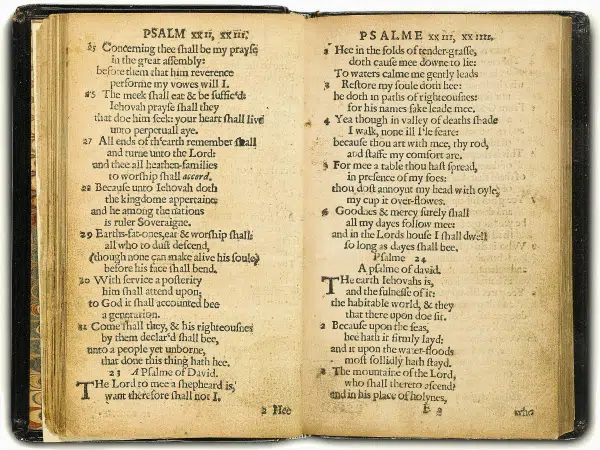 PSALM xxii, xxiii.
25 Concerning thee shall be my prayse
in the great assembly:
before them that him reverence
performe my vowes will I.
25 The meek shall eat & be suffic'd:
Iehovah prayse shall they
that doe him seek: your heart shall live
unto perpetuall aye.
27 All ends of th'earth remember shall
and turne unto the Lord:
and thee all heathen-families
to worship shall accord.
28 Because unto Iehovah doth
the kingdome appertaine:
and he among the nations
is ruler Soveraigne.
29 Earths-fat-ones, eat & worship shall:
all who to dust descend,
(though none can make alive his soule)
before his face shall bend.
30 With service a posterity
him shall attend upon;
to God it shall accounted bee
a generation.
31 Come shall they, & his righteousnes
by them declar'd shall bee,
unto a people yet unborne,
that done this thing hath hee.
23 A Psalme of David.
THe Lord to mee a shepheard is,
want therefore shall not I.
2 Hee
PSALME xxiii, xxiiii.
2 Hee in the folds of tender-grasse,
doth cause mee downe to lie:
To waters calme me gently leads
3 Restore my soule doth hee:
he doth in paths of righteousnes:
for his names sake leade mee.
4 Yea though in valley of deaths shade
I walk, none ill I'le feare:
because thou art with mee, thy rod,
and staffe my comfort are.
5 For mee a table thou hast spread,
in presence of my foes:
thou dost annoynt my head with oyle,
my cup it over-flowes.
6 Goodnes & mercy surely shall
all my dayes follow mee:
and in the Lords house I shall dwell
so long as dayes shall bee.
Psalme 24
A psalme of david.
THe earth Iehovahs is,
and the fulnesse of it:
the habitable world, & they
that there upon doe sit.
2 Because upon the seas,
hee hath it firmly layd:
and it upon the water-floods
most sollidly hath stayd.
3 The mountaine of the Lord,
who shall thereto ascend?
and in his place of holynes,
E 2 who